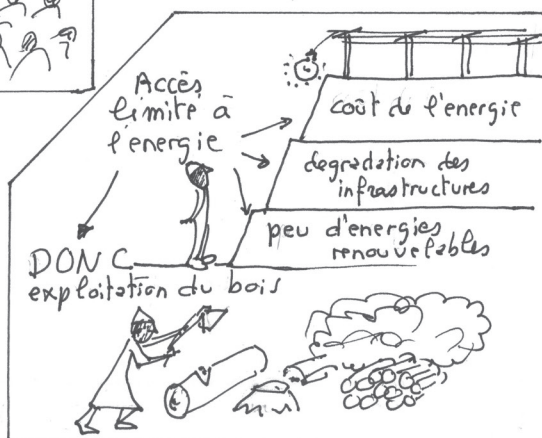 Accès
limité à
l'énergie
coût de l'energie
degradation des
infrastructures
peu d'energies
renouvelables
DONC
exploitation du bois